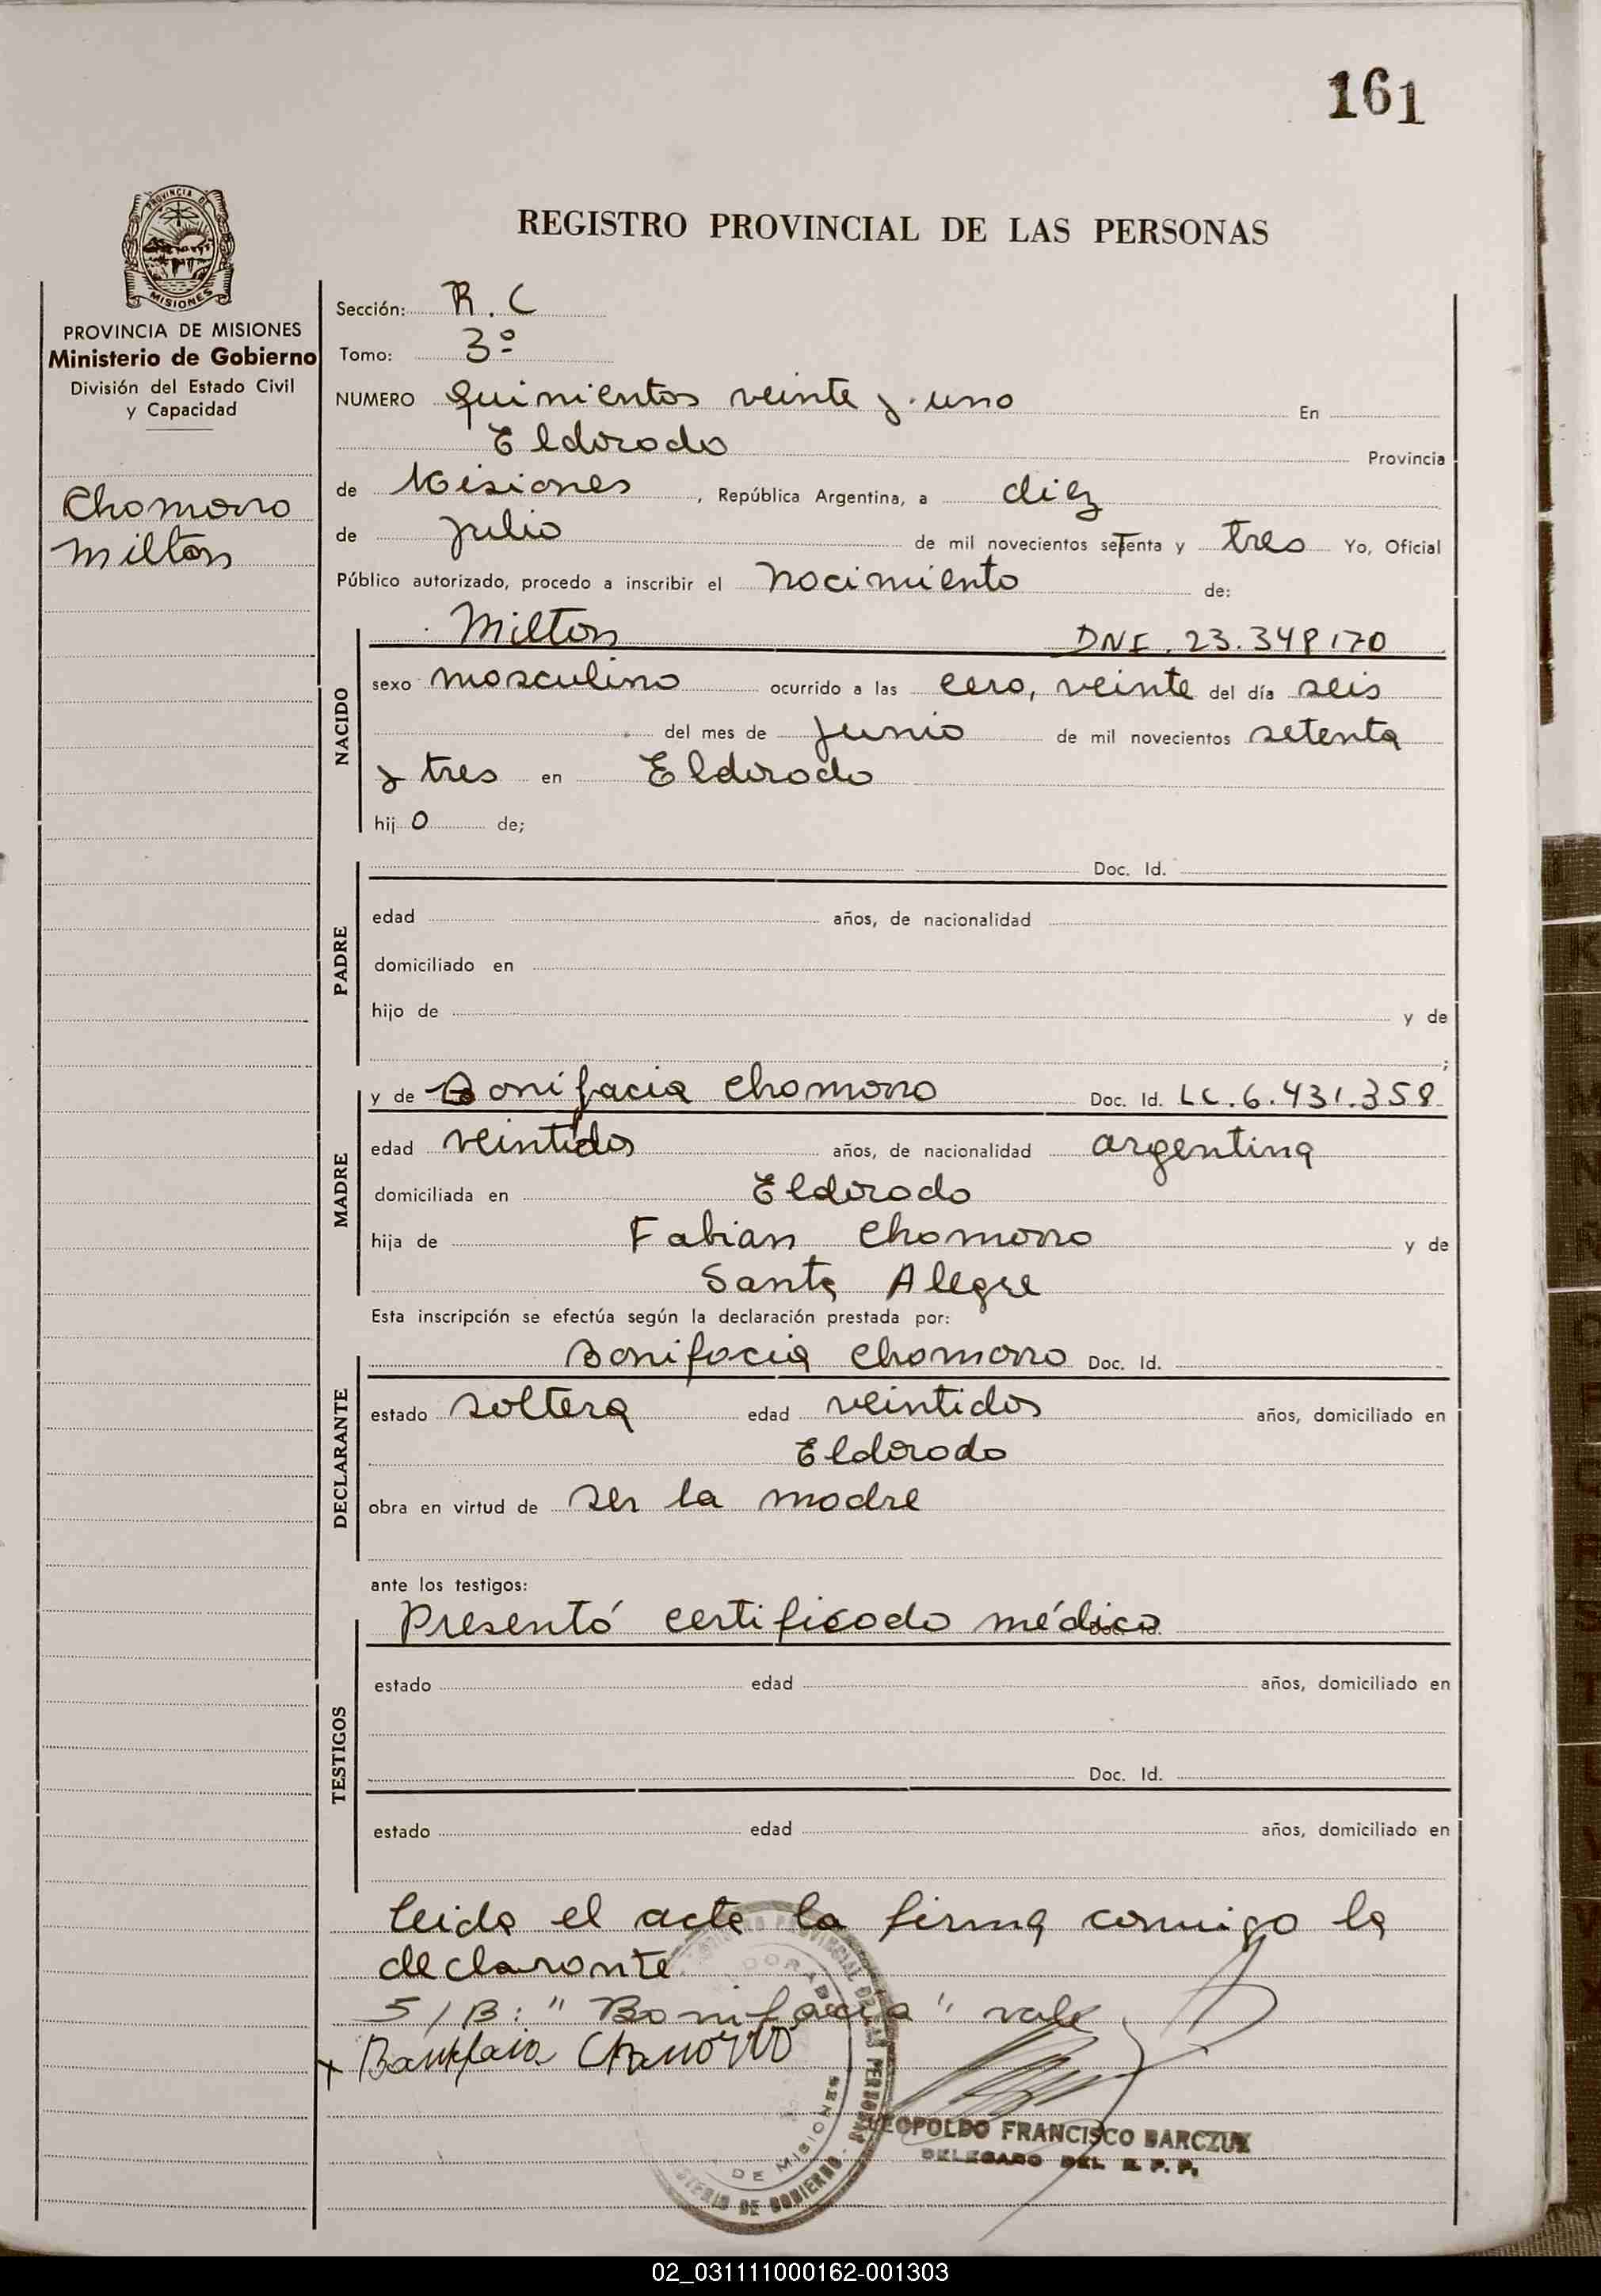 161
PROVINCIA DE
MISIONES
REGISTRO PROVINCIAL DE LAS PERSONAS
PROVINCIA DE MISIONES
Ministerio de Gobierno
División del Estado Civil
y Capacidad
Chamorro
Milton
Sección: R. C
Tomo: 3º
NUMERO Quinientos veinte y uno En
Eldorado Provincia
de Misiones, República Argentina, a diez
de julio de mil novecientos setenta y tres Yo, Oficial
Público autorizado, procedo a inscribir el nacimiento de:
NACIDO
Milton DNI. 23.348170
sexo masculino ocurrido a las cero, veinte del día seis
del mes de junio de mil novecientos setenta
y tres en Eldorado
hij o de;
PADRE
Doc. Id.
edad años, de nacionalidad
domiciliado en
hijo de y de
;
MADRE
y de Bonifacia Chamorro Doc. Id. LC. 6.431.358
edad veintidos años, de nacionalidad argentina
domiciliada en Eldorado
hija de Fabian Chamorro y de
Santa Alegre
Esta inscripción se efectúa según la declaración prestada por:
DECLARANTE
Bonifacia Chamorro Doc. Id.
estado soltera edad veintidos años, domiciliado en
Eldorado
obra en virtud de ser la madre
ante los testigos:
TESTIGOS
Presentó certificado médico
estado edad años, domiciliado en
Doc. Id.
estado edad años, domiciliado en
leida el acta la firma conmigo la
declarante.
S/B: "Bonifacia" vale
x Bonifacia Chamorro
LEOPOLDO FRANCISCO BARCZUK
DELEGADO DEL R. P. P.
02_031111000162-001303